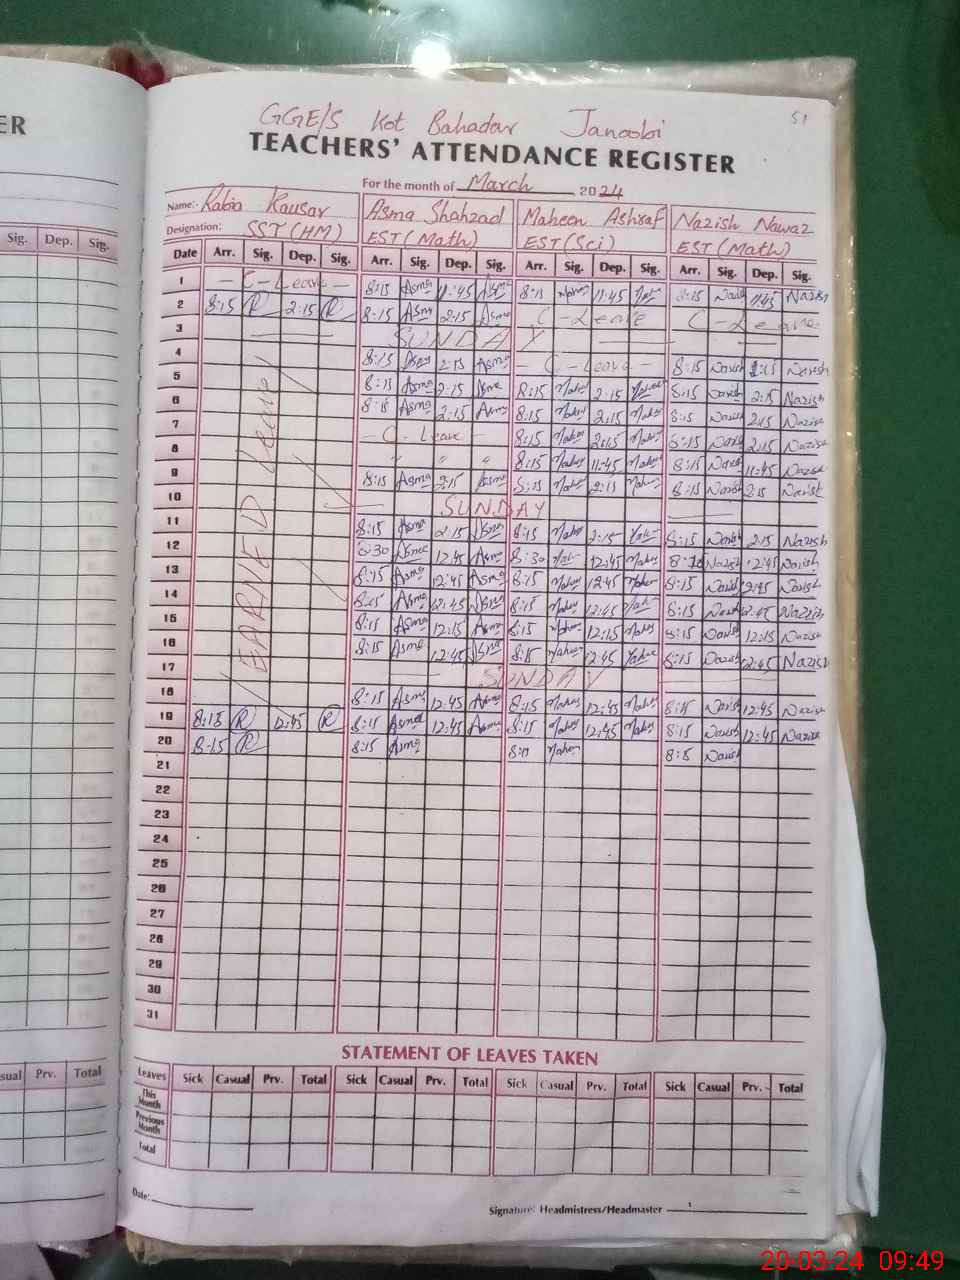 ER
Sig. Dep. Sig.
GGE/S Kot Bahadar Janoobi 51
TEACHERS' ATTENDANCE REGISTER
For the month of March 2024
Name:- Rabia Kausar Asma Shahzad Maheen Ashraf Nazish Nawaz
Designation: SST (HM) EST (Math) EST (Sci) EST (Math)
Date Arr. Sig. Dep. Sig. Arr. Sig. Dep. Sig. Arr. Sig. Dep. Sig. Arr. Sig. Dep. Sig.
1 - C - Leave - 8:15 Asma 11:45 Asma 8:15 Mahen 11:45 8:15 11:45 Nazish
2 8:15 R 2:15 R 8:15 Asma 2:15 Asma C - Leave C - Leave
3 SUNDAY
4 8:15 2:15 Asma - C - Leave - 8:15 Nazish 2:15 Nazish
5 EARNED Leave 8:15 Asma 2:15 Asma 8:15 Mahen 2:15 8:15 Nazish 2:15 Nazish
6 8:15 Asma 2:15 Asma 8:15 Mahen 2:15 Mahen 8:15 Nazish 2:15 Nazish
7 - C - Leave - 8:15 Mahen 2:15 Mahen 8:15 Nazish 2:15 Nazish
8 " " " 8:15 Mahen 11:45 Mahen 8:15 Nazish 11:45 Nazish
9 8:15 Asma 2:15 Asma 8:15 Mahen 2:15 Mahen 8:15 Nazish 2:15 Nazish
10 SUNDAY
11 8:15 Asma 2:15 Asma 8:15 Mahen 2:15 8:15 Nazish 2:15 Nazish
12 8:30 Asma 12:45 Asma 8:30 12:45 Mahen 8:30 Nazish 12:45 Nazish
13 8:15 Asma 12:45 Asma 8:15 Mahen 12:45 Mahen 8:15 Nazish 12:45 Nazish
14 8:15 Asma 12:45 Asma 8:15 Mahen 12:45 8:15 Nazish 12:45 Nazish
15 8:15 Asma 12:15 Asma 8:15 Mahen 12:15 Mahen 8:15 Nazish 12:15 Nazish
16 8:15 Asma 12:45 Asma 8:15 Mahen 12:45 8:15 Nazish 12:45 Nazish
17 SUNDAY
18 8:15 Asma 12:45 Asma 8:15 Mahen 12:45 Mahen 8:15 Nazish 12:45 Nazish
19 8:15 R 12:45 R 8:15 Asma 12:45 Asma 8:15 Mahen 12:45 Mahen 8:15 Nazish 12:45 Nazish
20 8:15 R 8:15 Asma Mahen 8:15 Nazish
21
22
23
24
25
26
27
28
29
30
31
STATEMENT OF LEAVES TAKEN
sual Prv. Total
Leaves Sick Casual Prv. Total Sick Casual Prv. Total Sick Casual Prv. Total Sick Casual Prv. Total
This Month
Previous Month
Total
Date:
Signature: Headmistress/Headmaster
20-03-24 09:49